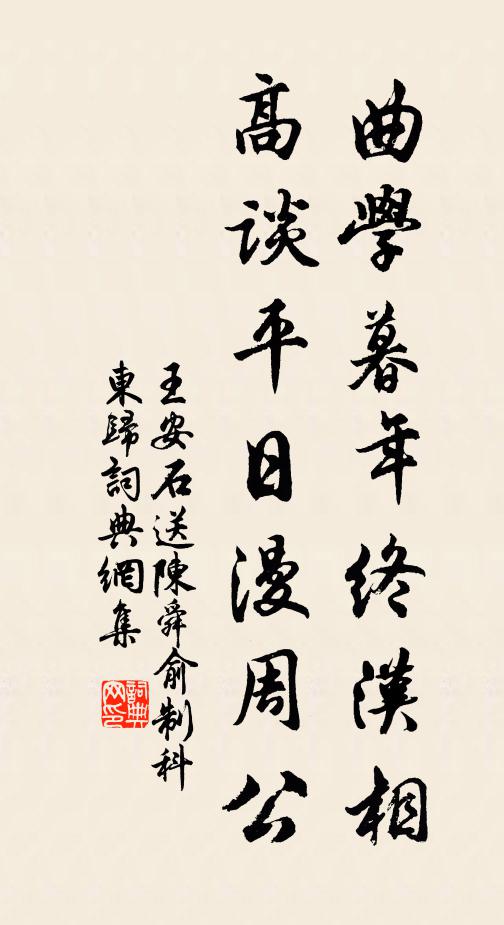 曲學暮年終漢相
高談平日漫周公
王安石送陳舜俞制科
東歸詞典網集
詞典
网印